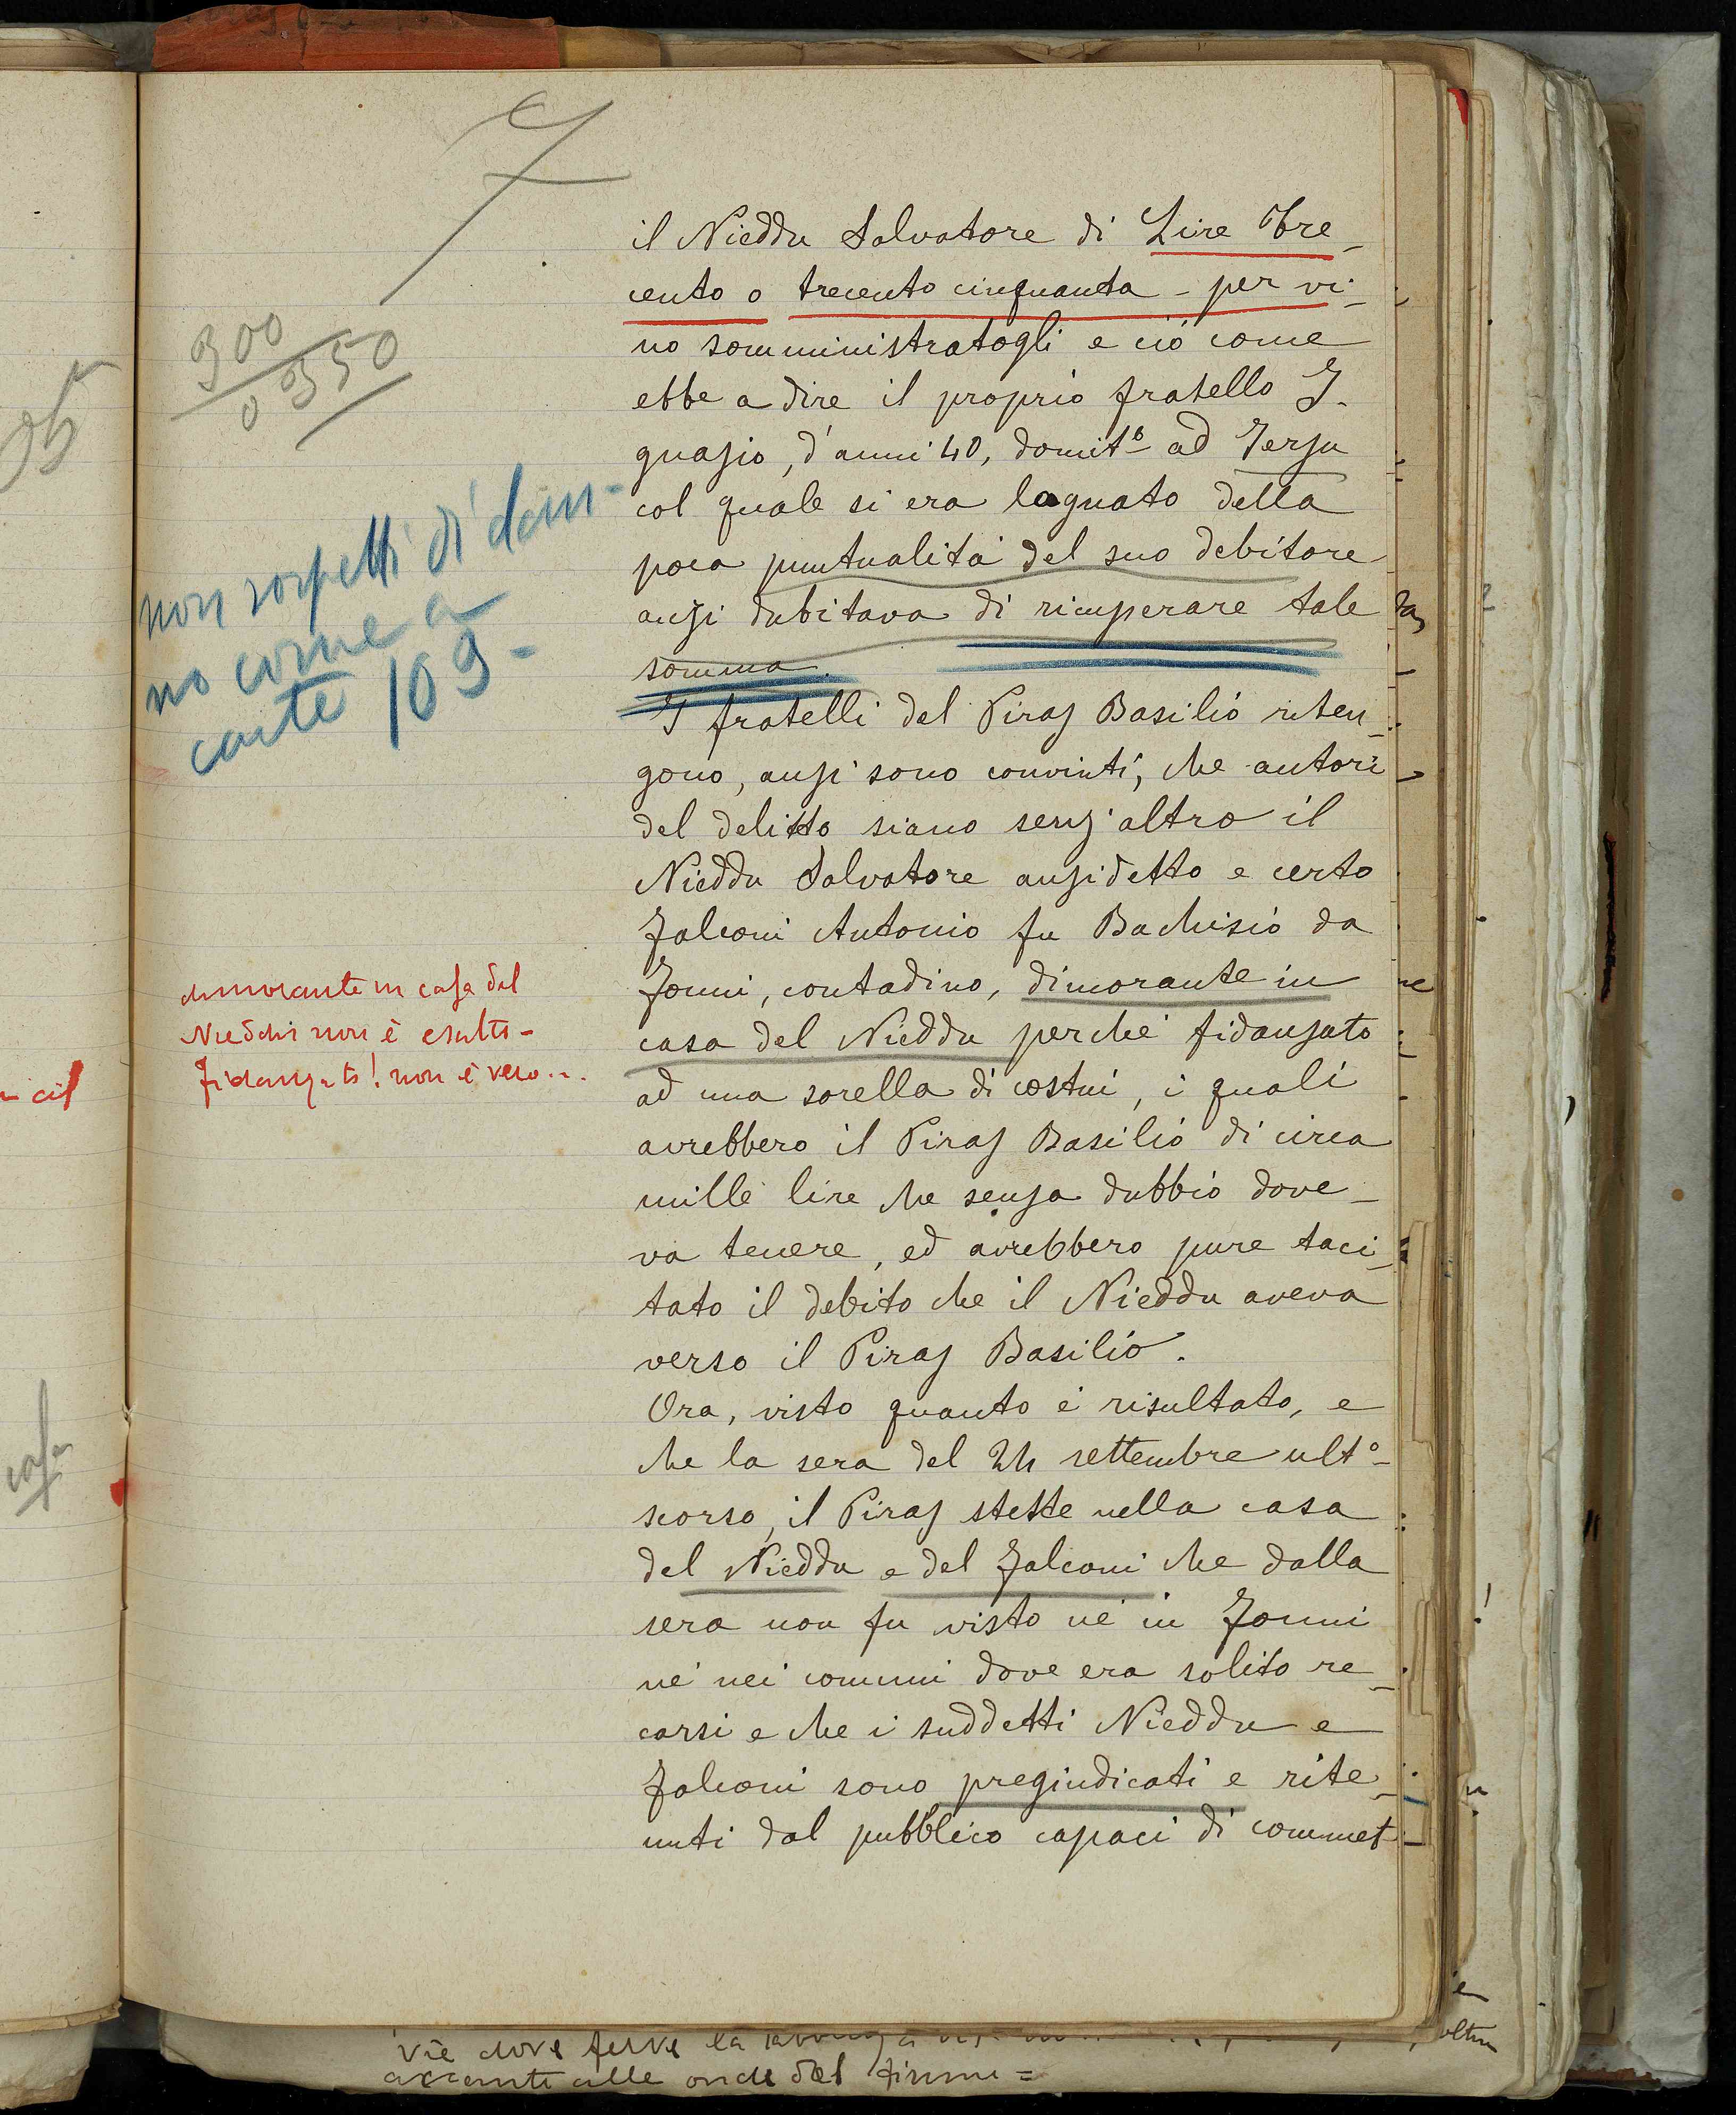 7
il Nieddu Salvatore di Lire Tre-
cento o trecento cinquanta - per vi-
no somministratogli e ciò come
ebbe a dire il proprio fratello I-
gnazio, d'anni 40, domit° ad Jerzu
col quale si era lagnato della
poca puntualità del suo debitore
anzi dubitava di ricuperare tale
somma.
I fratelli del Piras Basilio riten-
gono, anzi sono convinti, che autori
del delitto siano senz'altro il
Nieddu Salvatore anzidetto e certo
Falconi Antonio fu Bachisio da
Fonni, contadino, dimorante in
casa del Nieddu perchè fidanzato
ad una sorella di costui, i quali
avrebbero il Piras Basilio di circa
mille lire che senza dubbio dove-
va tenere, ed avrebbero pure taci-
tato il debito che il Nieddu aveva
verso il Piras Basilio.
Ora, visto quanto è risultato, e
che la sera del 24 settembre ult°
scorso, il Piras stette nella casa
del Nieddu e del Falconi che dalla
sera non fu visto nè in Fonni
nè nei comuni dove era solito re-
carsi e che i suddetti Nieddu e
Falconi sono pregiudicati e rite-
nuti dal pubblico capaci di commet-
300
o 350
non sospetti di dan-
no come a
carte 109-
dimorante in casa del
Nieddu non è esatto-
fidanzato! non è vero...
casa
vie dove ferve la
alle onde del fiume =